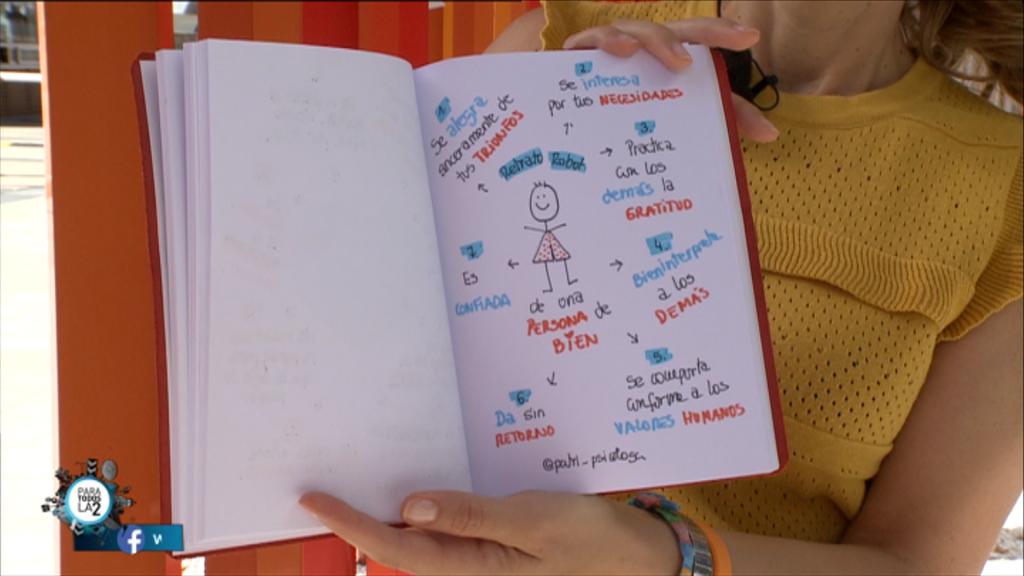 1.
Se alegra
sinceramente de
tus TRIUNFOS
2.
Se interesa
por tus NECESIDADES
Retrato Robot
3.
Practica
con los
demás la
GRATITUD
4.
Bieninterpreta
a los
DEMÁS
7.
Es
CONFIADA
de una
PERSONA de
BIEN
5.
Se comporta
conforme a los
VALORES HUMANOS
6.
Da sin
RETORNO
@patri_psicologa
PARA
TODOS
LA 2
f